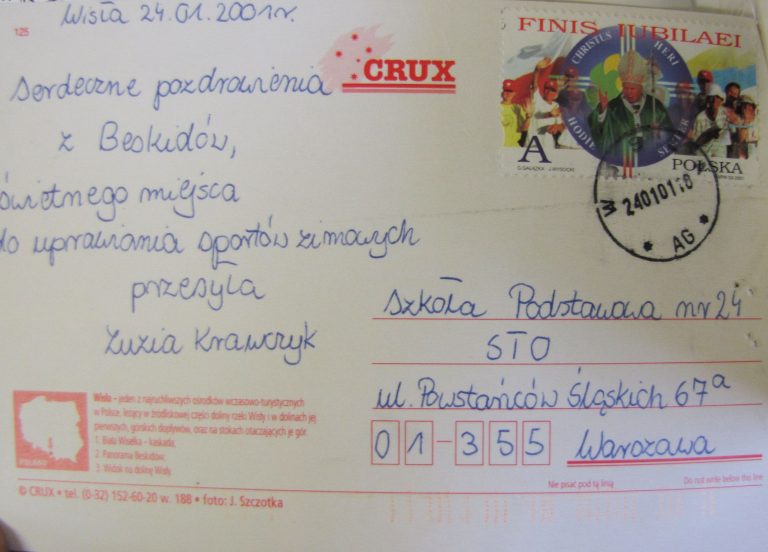 Wisła 24.01.2001r.
125
CRUX
Serdeczne pozdrowienia
z Beskidów,
świetnego miejsca
do uprawiania sportów zimowych
przesyła
Zuzia Krawczyk
FINIS IUBILAEI
CHRISTUS HERI
HODIE SEMPER
A
POLSKA
W
24010118
* AG *
Szkoła Podstawowa nr 24
STO
ul. Powstańców Śląskich 67a
01-355 Warszawa
Nie pisać pod tą linią
Do not write below this line
POLAND
Wisła – jeden z najruchliwszych ośrodków wczasowo-turystycznych
w Polsce, leżący w źródliskowej części doliny rzeki Wisły i w dolinach jej
pierwszych, górskich dopływów, oraz na stokach otaczających je gór.
1. Biała Wisełka – kaskada,
2. Panorama Beskidów,
3. Widok na dolinę Wisły.
© CRUX • tel. (0-32) 152-60-20 w. 188 • foto: J. Szczotka